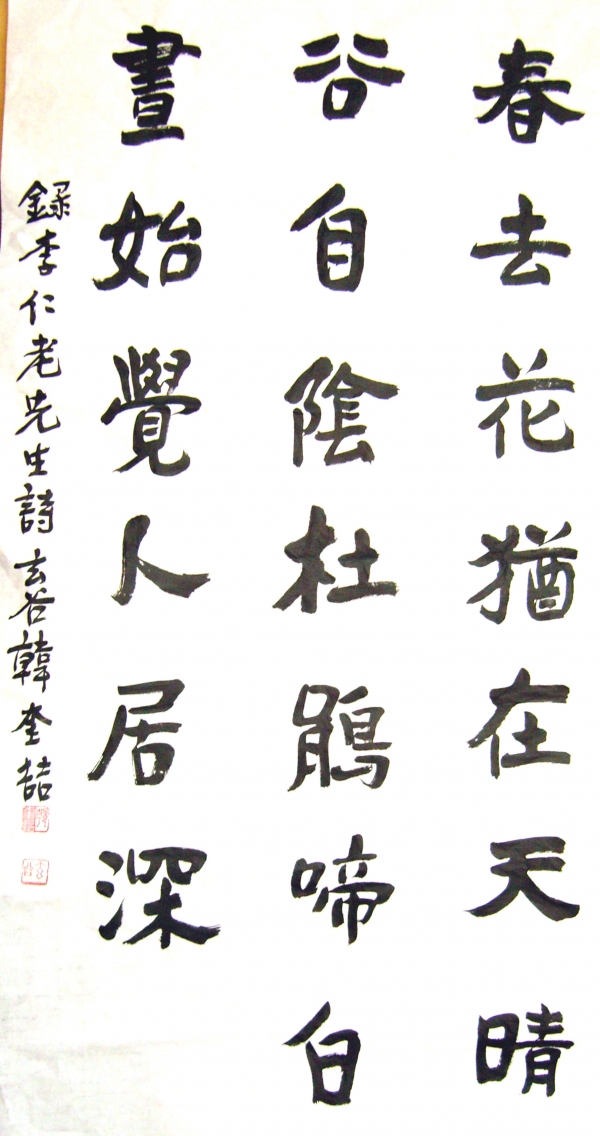 春去花猶在天晴
谷自陰杜鵑啼白
晝始覺人居深
錄李仁老先生詩玄谷韓奎喆